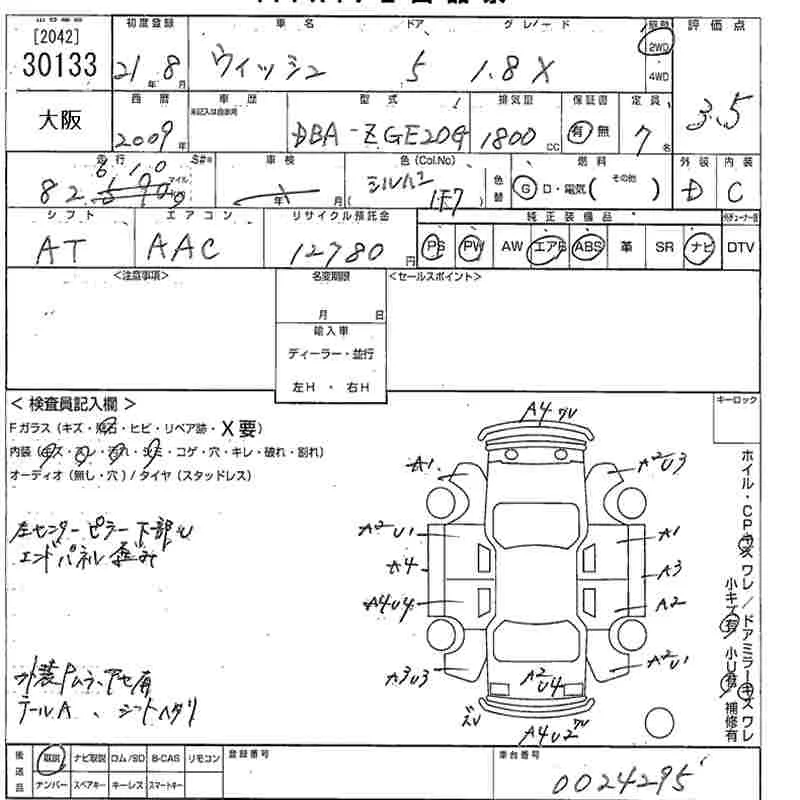 [2042]
30133
大阪
初度登録
21年 8月
車名
ウィッシュ
ドア
5
グレード
1.8 X
駆動
2WD
4WD
評価点
3.5
西暦
2009年
車歴
未記入は自家用
型式
DBA-ZGE20G
排気量
1800cc
保証書
有 無
定員
7名
走行
82
610
マイル
S#*
車検
年 月
色(Col.No)
シルバー
1F7
色替
燃料
G D・電気( その他 )
外装
D
内装
C
シフト
AT
エアコン
AAC
リサイクル預託金
12780円
純正装備品
PS PW AW エアB ABS 革 SR ナビ DTV
<注意事項>
名変期限
月 日
輸入車
ディーラー・並行
左H ・ 右H
<セールスポイント>
キーロック
<検査員記入欄>
Fガラス(キズ・飛石・ヒビ・リペア跡・X要)
内装(キズ・スレ・汚れ・シミ・コゲ・穴・キレ・破れ・割れ)
オーディオ(無し・穴)/タイヤ(スタッドレス)
左センターピラー下部U
エンドパネル歪み
テールA、シートヘタリ
A4
A1
A2U3
A2U1
A1
A4
A3
A4U4
A2
A3U3
A2U4
A2U1
A4U2
ホイル・CPキズワレ/ドアミラーキズワレ
小キズ有 小U有 補修有
後送品
取説 ナビ取説 ロム/SD B-CAS リモコン
ナンバー スペアキー キーレス スマートキー
登録番号
車台番号
0024295